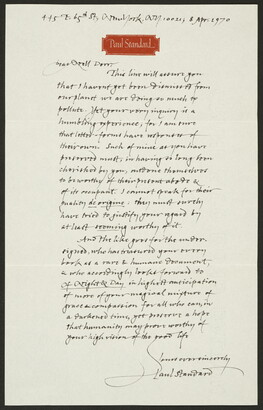 445 E. 65th St, New York, N.Y. 10021, 8 Apr. 1970
Paul Standard
Dear
This line will assure you
that I haven't yet been divorced from
our planet we are doing so much to
pollute. Yet your very inquiry is a
humbling experience, for I am sure
that letter-forms have responses of
their own. Such of mine as you have
preserved must, in having so long been
cherished by you, outdone themselves
to be worthy of their present abode &
of its occupant. I cannot speak for their
quality de origine - they must surely
have tried to justify your regard by
at least seeming worthy of it.
And the like goes for the under-
signed, who has treasured your
book as a rare & humane document,
& who accordingly looks forward to
Of Night & Day in highest anticipation
of more of your magical mixture of
grace & compassion for all who can, in
a darkened time, yet preserve a hope
that humanity may prove worthy of
your high vision of the good life.
Yours ever sincerely
Paul Standard